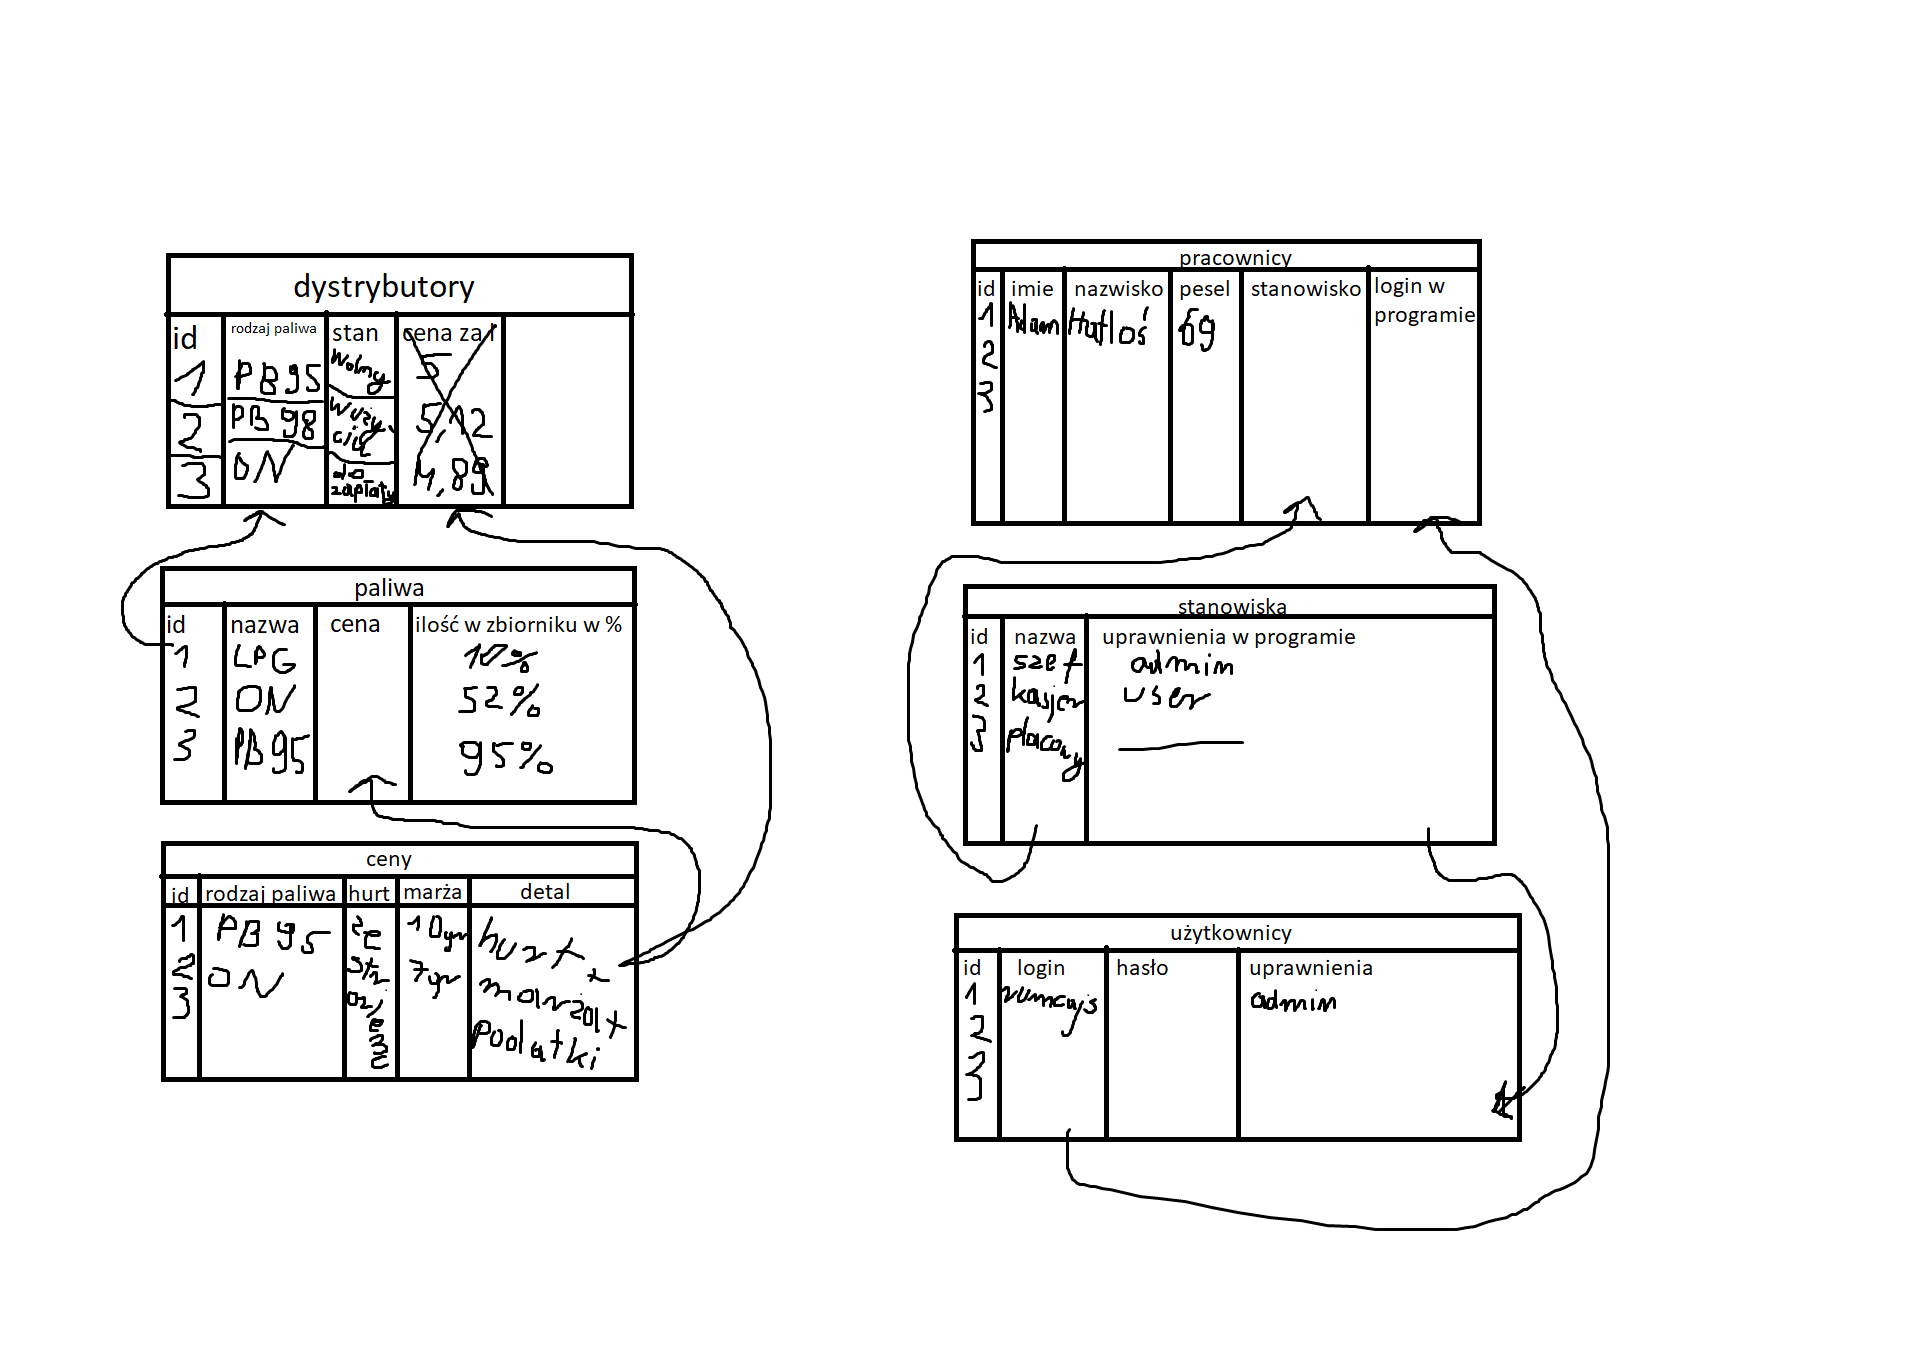 dystrybutory
id rodzaj paliwa stan cena za l
1 PB95 wolny 5
2 PB 98 w użyciu 5,12
3 ON do zapłaty 4,89
paliwa
id nazwa cena ilość w zbiorniku w %
1 LPG 10%
2 ON 52%
3 PB95 95%
ceny
id rodzaj paliwa hurt marża detal
1 PB 95 ze 10gr hurt +
2 ON 7gr marża +
3 podatki
pracownicy
id imie nazwisko pesel stanowisko login w programie
1 Adam 69
2
3
stanowiska
id nazwa uprawnienia w programie
1 szef admin
2 kasjer user
3 placowy
użytkownicy
id login hasło uprawnienia
1 rumcajs admin
2
3